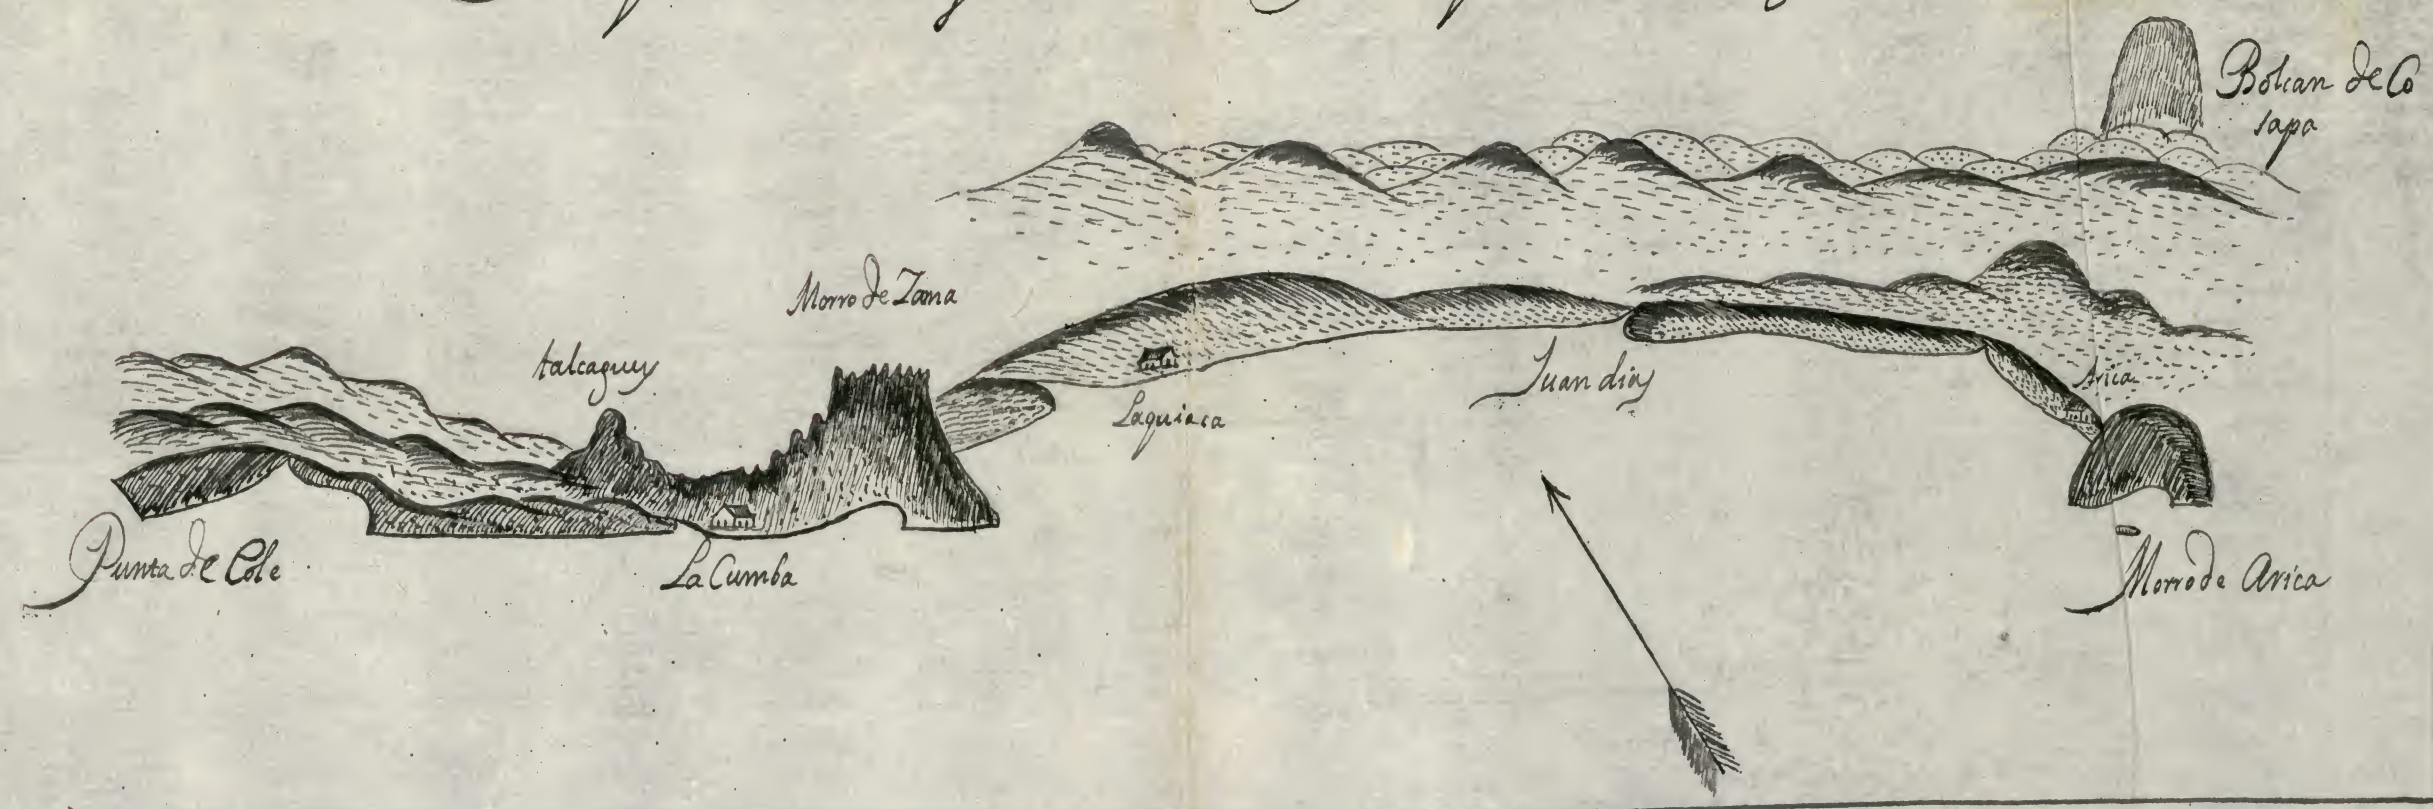 Bolcan de Co
sapa
Morro de Zama
talcaguy
Juan diaz
Arica
Laquiaca
Punta de Cole
La Cumba
Morro de Arica